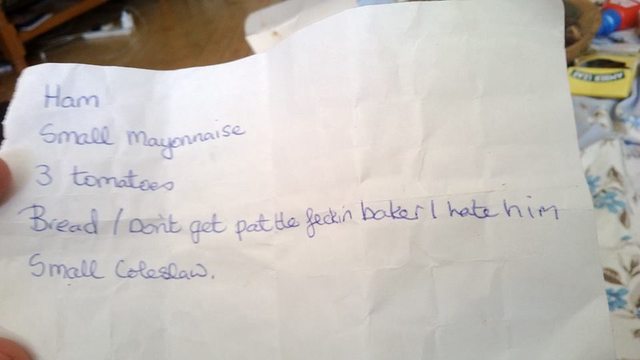 Ham
Small mayonnaise
3 tomatoes
Bread / Don't get pat the feckin baker I hate him
Small Coleslaw.
AMBER LEAF